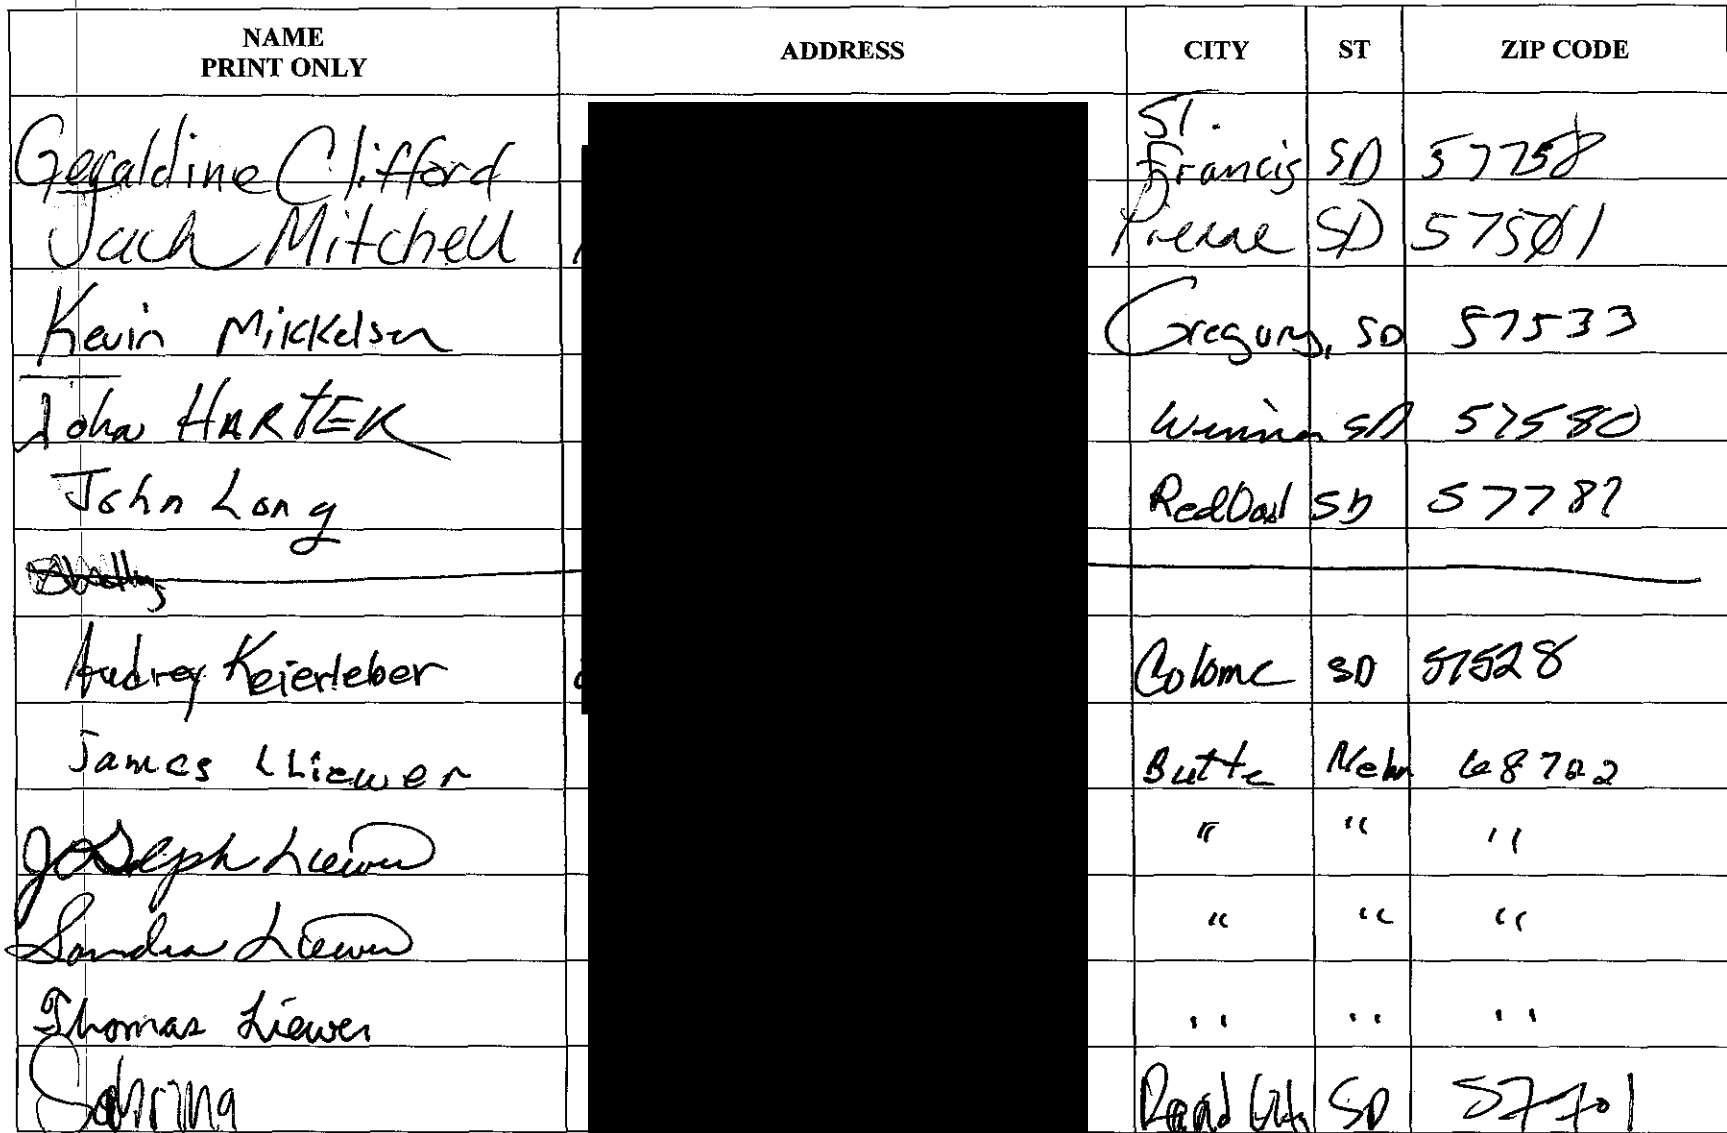 NAME PRINT ONLY ADDRESS CITY ST ZIP CODE
Geraldine Clifford St. Francis SD 57758
Jack Mitchell Pierre SD 57501
Kevin Mikkelsen Gregory, SD 57533
John HARTER Winner SD 57580
John Long SD
Audrey Keierleber Colome SD 57528
James Liewer Butte Nebr 68722
Joseph Liewer " " "
Sandra Liewer " " "
Thomas Liewer " " "
Sabrina SD 57701